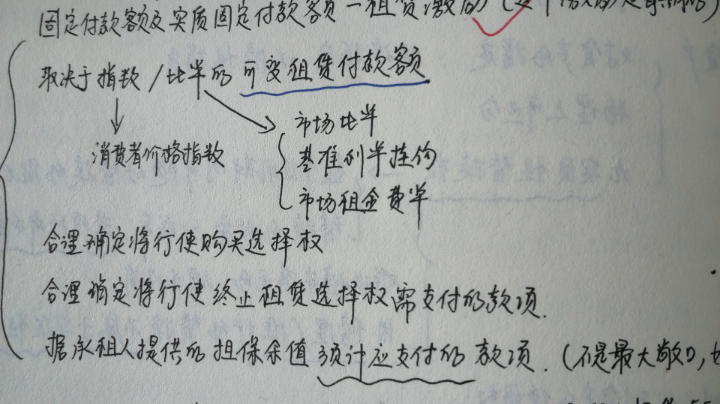 固定付款额及实质固定付款额－租赁激励
取决于指数/比率的可变租赁付款额
市场比率
消费者价格指数
基准利率挂钩
市场租金费率
合理确定将行使购买选择权
合理确定将行使终止租赁选择权需支付的款项.
据承租人提供的担保余值预计应支付的款项.(不是最大敞口,